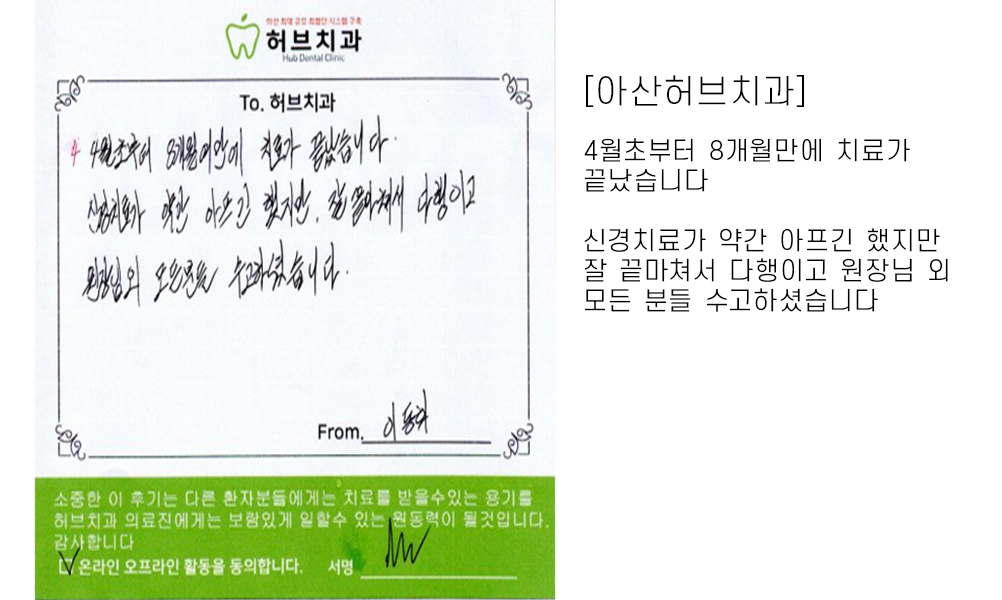 아산 최대 규모 최첨단 시스템 구축
허브치과
Hub Dental Clinic
To. 허브치과
4 4월초부터 8개월여만에 치료가 끝났습니다.
신경치료가 약간 아프긴 했지만, 잘 끝마쳐서 다행이고
원장님외 모든분들 수고하셨습니다.
From. 이동희
소중한 이 후기는 다른 환자분들에게는 치료를 받을수있는 용기를
허브치과 의료진에게는 보람있게 일할수 있는 원동력이 될것입니다.
감사합니다
온라인 오프라인 활동을 동의합니다. 서명
[아산허브치과]
4월초부터 8개월만에 치료가
끝났습니다
신경치료가 약간 아프긴 했지만
잘 끝마쳐서 다행이고 원장님 외
모든 분들 수고하셨습니다